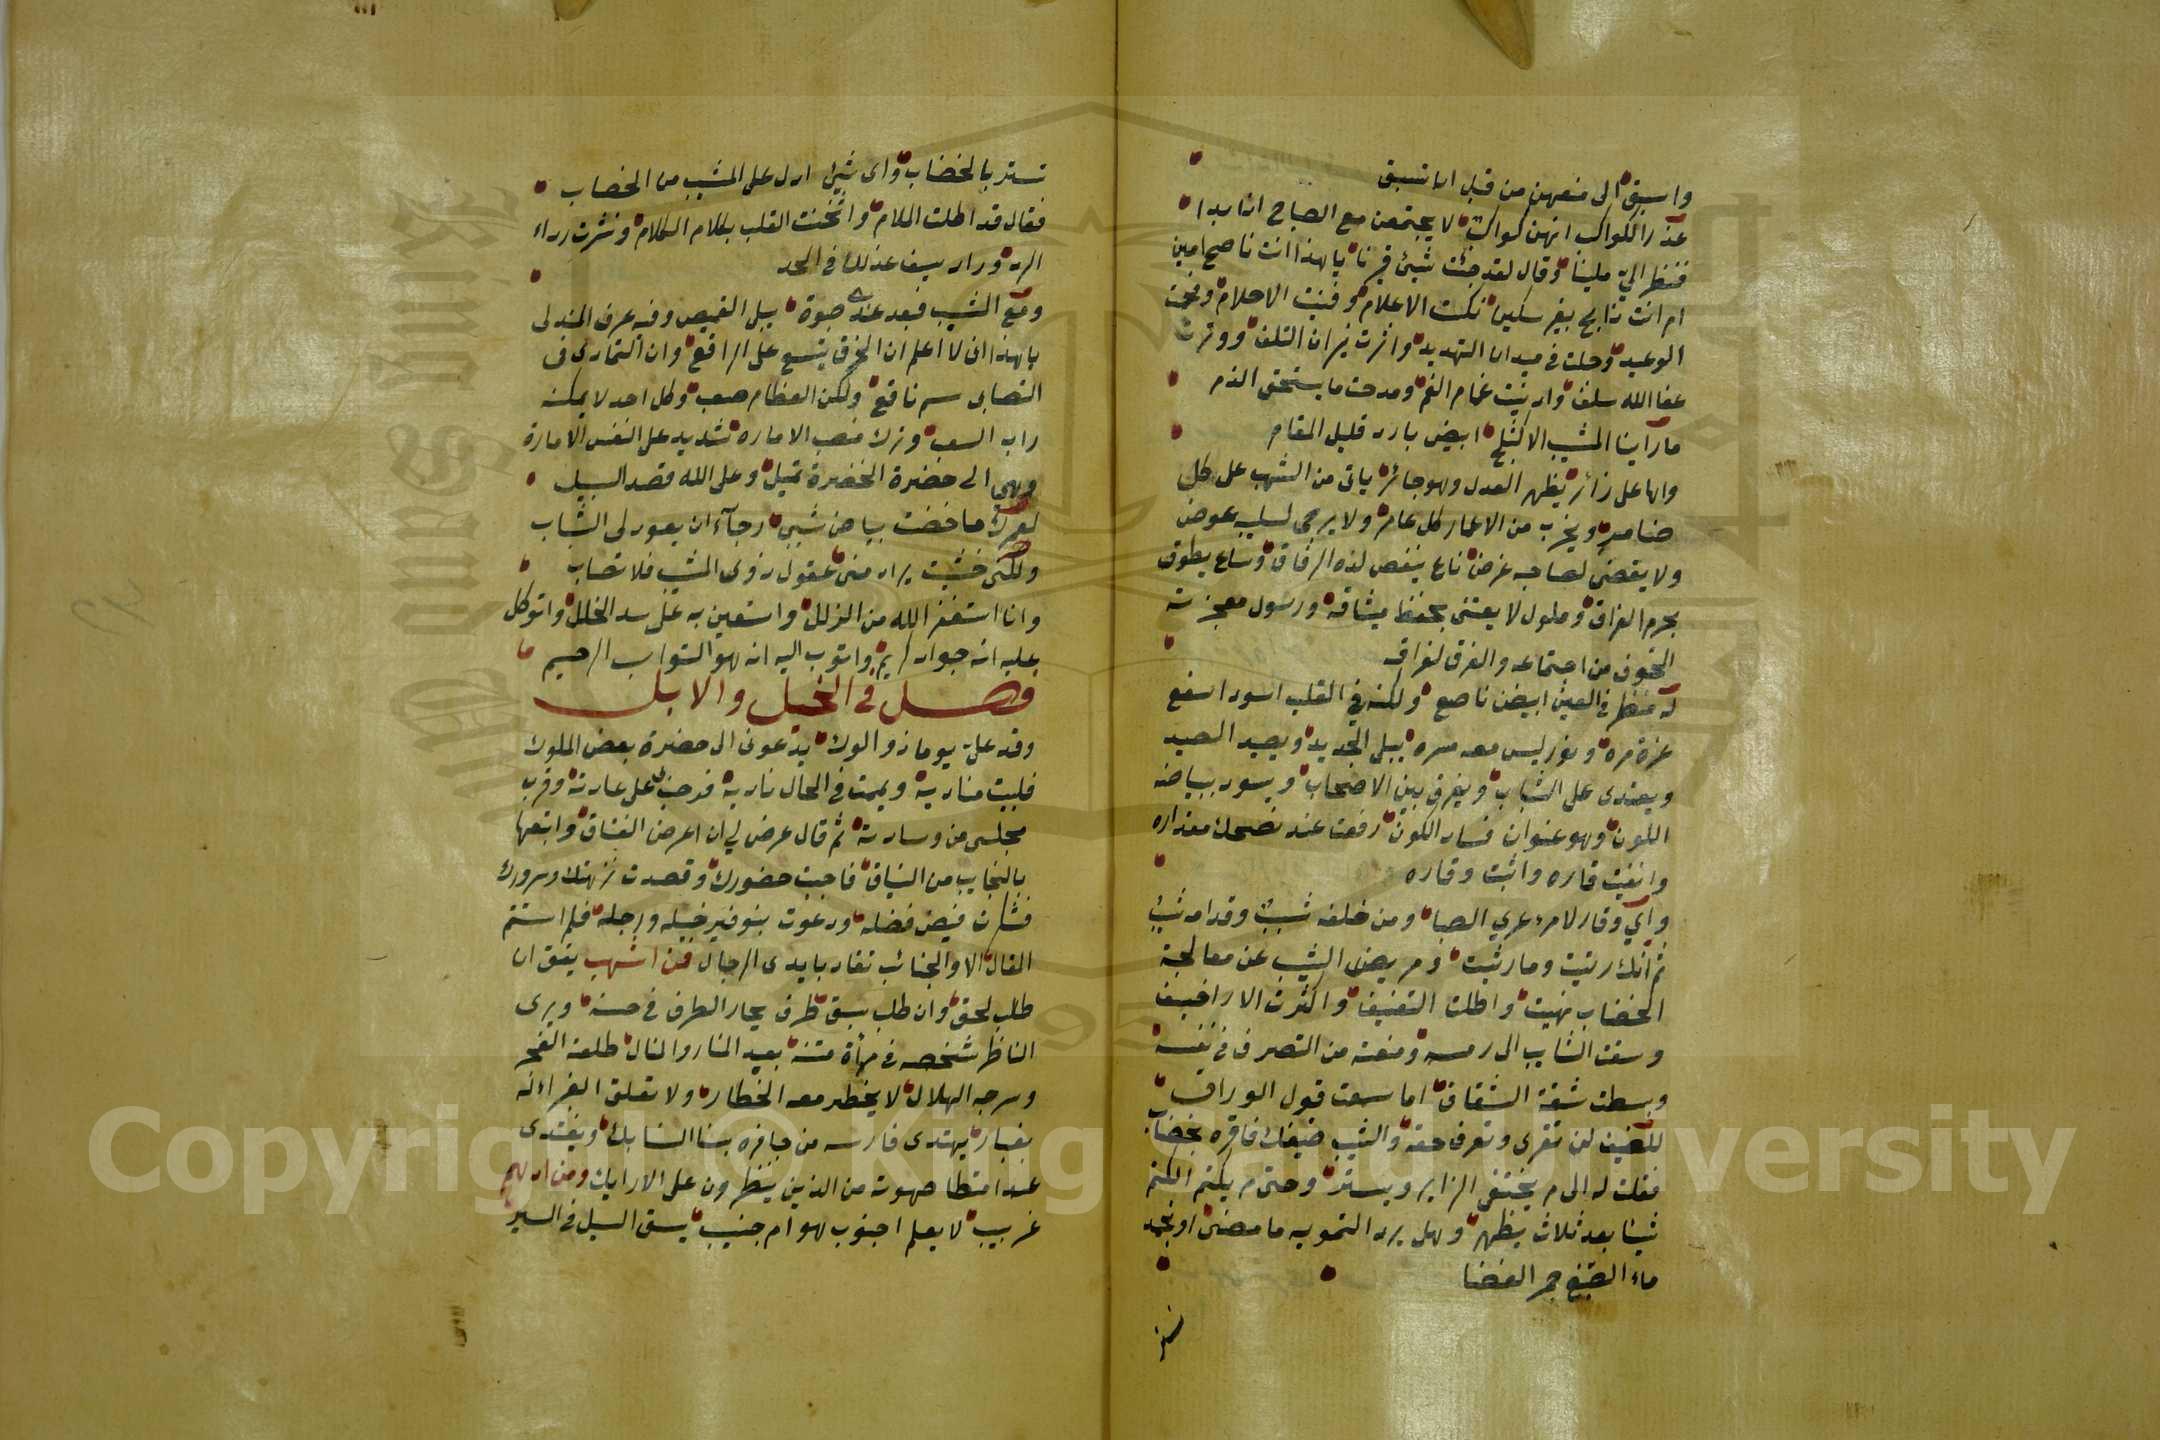 واسبق الى منعهن من قبل ان تسبق
عذر الكواكب انهن كواكب لا يجتمعن مع الصباح اذا بدا
فنظر الي مليا وقال لقد جئت شيئ فريا يا هذا انت ناصح امين
ام انت ذابح بغير سكين نكت الاعلام وفنيت الاحلام
الوعيد وجلت في ميدان التهديد واثرت نيران التلف
عفا الله سلف وارنيت غمام الغم ومدحت ما يستحق الذم
ما رأينا المشيب الا كثلج ابيض بارد قليل المقام
واها على زائر يظهر العدل وهو جائر ياتى من الشهب على كل
ضامر ويخرب من الاعمار كل عامر ولا يرجى لسلبه عوض
ولا يقضى لصاحبه غرض ناع ينغص لذه الرفاق وساع يطوق
بحرم الفراق وملول لا يعتنى بحفظ ميثاقه ورسول معجزته
الخوف من اجتماعه والفرق لفراقه
له منظر في العين ابيض ناصع ولكنه في القلب اسود اسفع
غرة مره ونور ليس معه مسره يبلى الجديد ويصيد الصيد
ويعتدى على الشباب ويفرق بين الاصحاب ويسود ببياضه
اللون وهو عنوان فساد الكون رفعت عند نصحك مقداره
وانفيت قاره واثبت وقاره
واي وقار لامرء عري الصبا ومن خلفه شيب وقدامه شيب
ثم انك رثيت ومارثيت ومريض الشيب عن معالجة
الخضاب نهيت واطلت التعنيف واكثرت الاراجيف
وسقت الشايب الى رمسه ومنعته من التصرف في نفسه
وبسطت شقة الشقاق اما سمعت قول الوراق
للضيف ان تقرى وتعرف حقه والشيب ضيفك فاقره بخضاب
فقلت له الى م يختفى الزاير ويستتر وحتى م يكتم الكتم
شيئا بعد ثلاث يظهر وهل يرد التمويه ما مضى او يخمد
ماء الصبغ جمر الغضا
تستتر بالخضاب واى شئ ادل على المشيب من الخضاب
فقال قد اطلت الملام واثخنت القلب بكلام الكلام ونشرت رداء
الرد وزاد سيف عذلك في الحد
ومع الشيب فبعد عندي صبوة يبلى القميص وفيه عرف المندل
يا هذا انى لا اعلم ان الخرق يتسع على الراقع وان التمادى فى
التصابى سم ناقع ولكن الفطام صعب وكل احد لا يمكنه
راب الشعب وترك منصب الاماره شديد على النفس الامارة
وهي الى حضرة الخضرة تميل وعلى الله قصد السبيل
لعمرك ما خضبت بياض شيبي رجآء ان يعود لى الشباب
ولكنى خشيت يراد منى عقول ذوى المشيب فلا تصاب
وانا استغفر الله من الزلل واستعين به على سد الخلل واتوكل
عليه انه جواد كريم واتوب اليه انه هو التواب الرحيم
فصل في الخيل والابل
وفد علي يوما ذو الوك يدعونى الى حضرة بعض الملوك
فلبيت مناديه ويممت في الحال ناديه فرحب بي على عادته وقرب
مجلسى من وسادته ثم قال عرض لي ان اعرض العتاق واتبعها
بالنجايب من النياق فاجبت حضورك وقصدت نزهتك وسرورك
فشكرت فيض فضله ودعوت بتوفير خيله ورجله فلم استتم
المقال الا والجنائب تقاد بايدى الرجال فمن اشهب يقق ان
طلب لحق وان طلب سبق طرف يحار الطرف في حسنه ويرى
الناظر شخصه في مرآة متنه بعيد المنار والمنال طلعته الفجر
وسرجه الهلال لا يخطر معه الخطار ولا تعلق الغبراء له
بغبار يهتدى فارسه من حافره بسنا السنابك ويغتدى
عند امتطا صهوته من الذين ينظرون على الارايك ومن ادهم
غربيب لا يعلم اجنوب هو ام جنيب يسبق السيل في السير